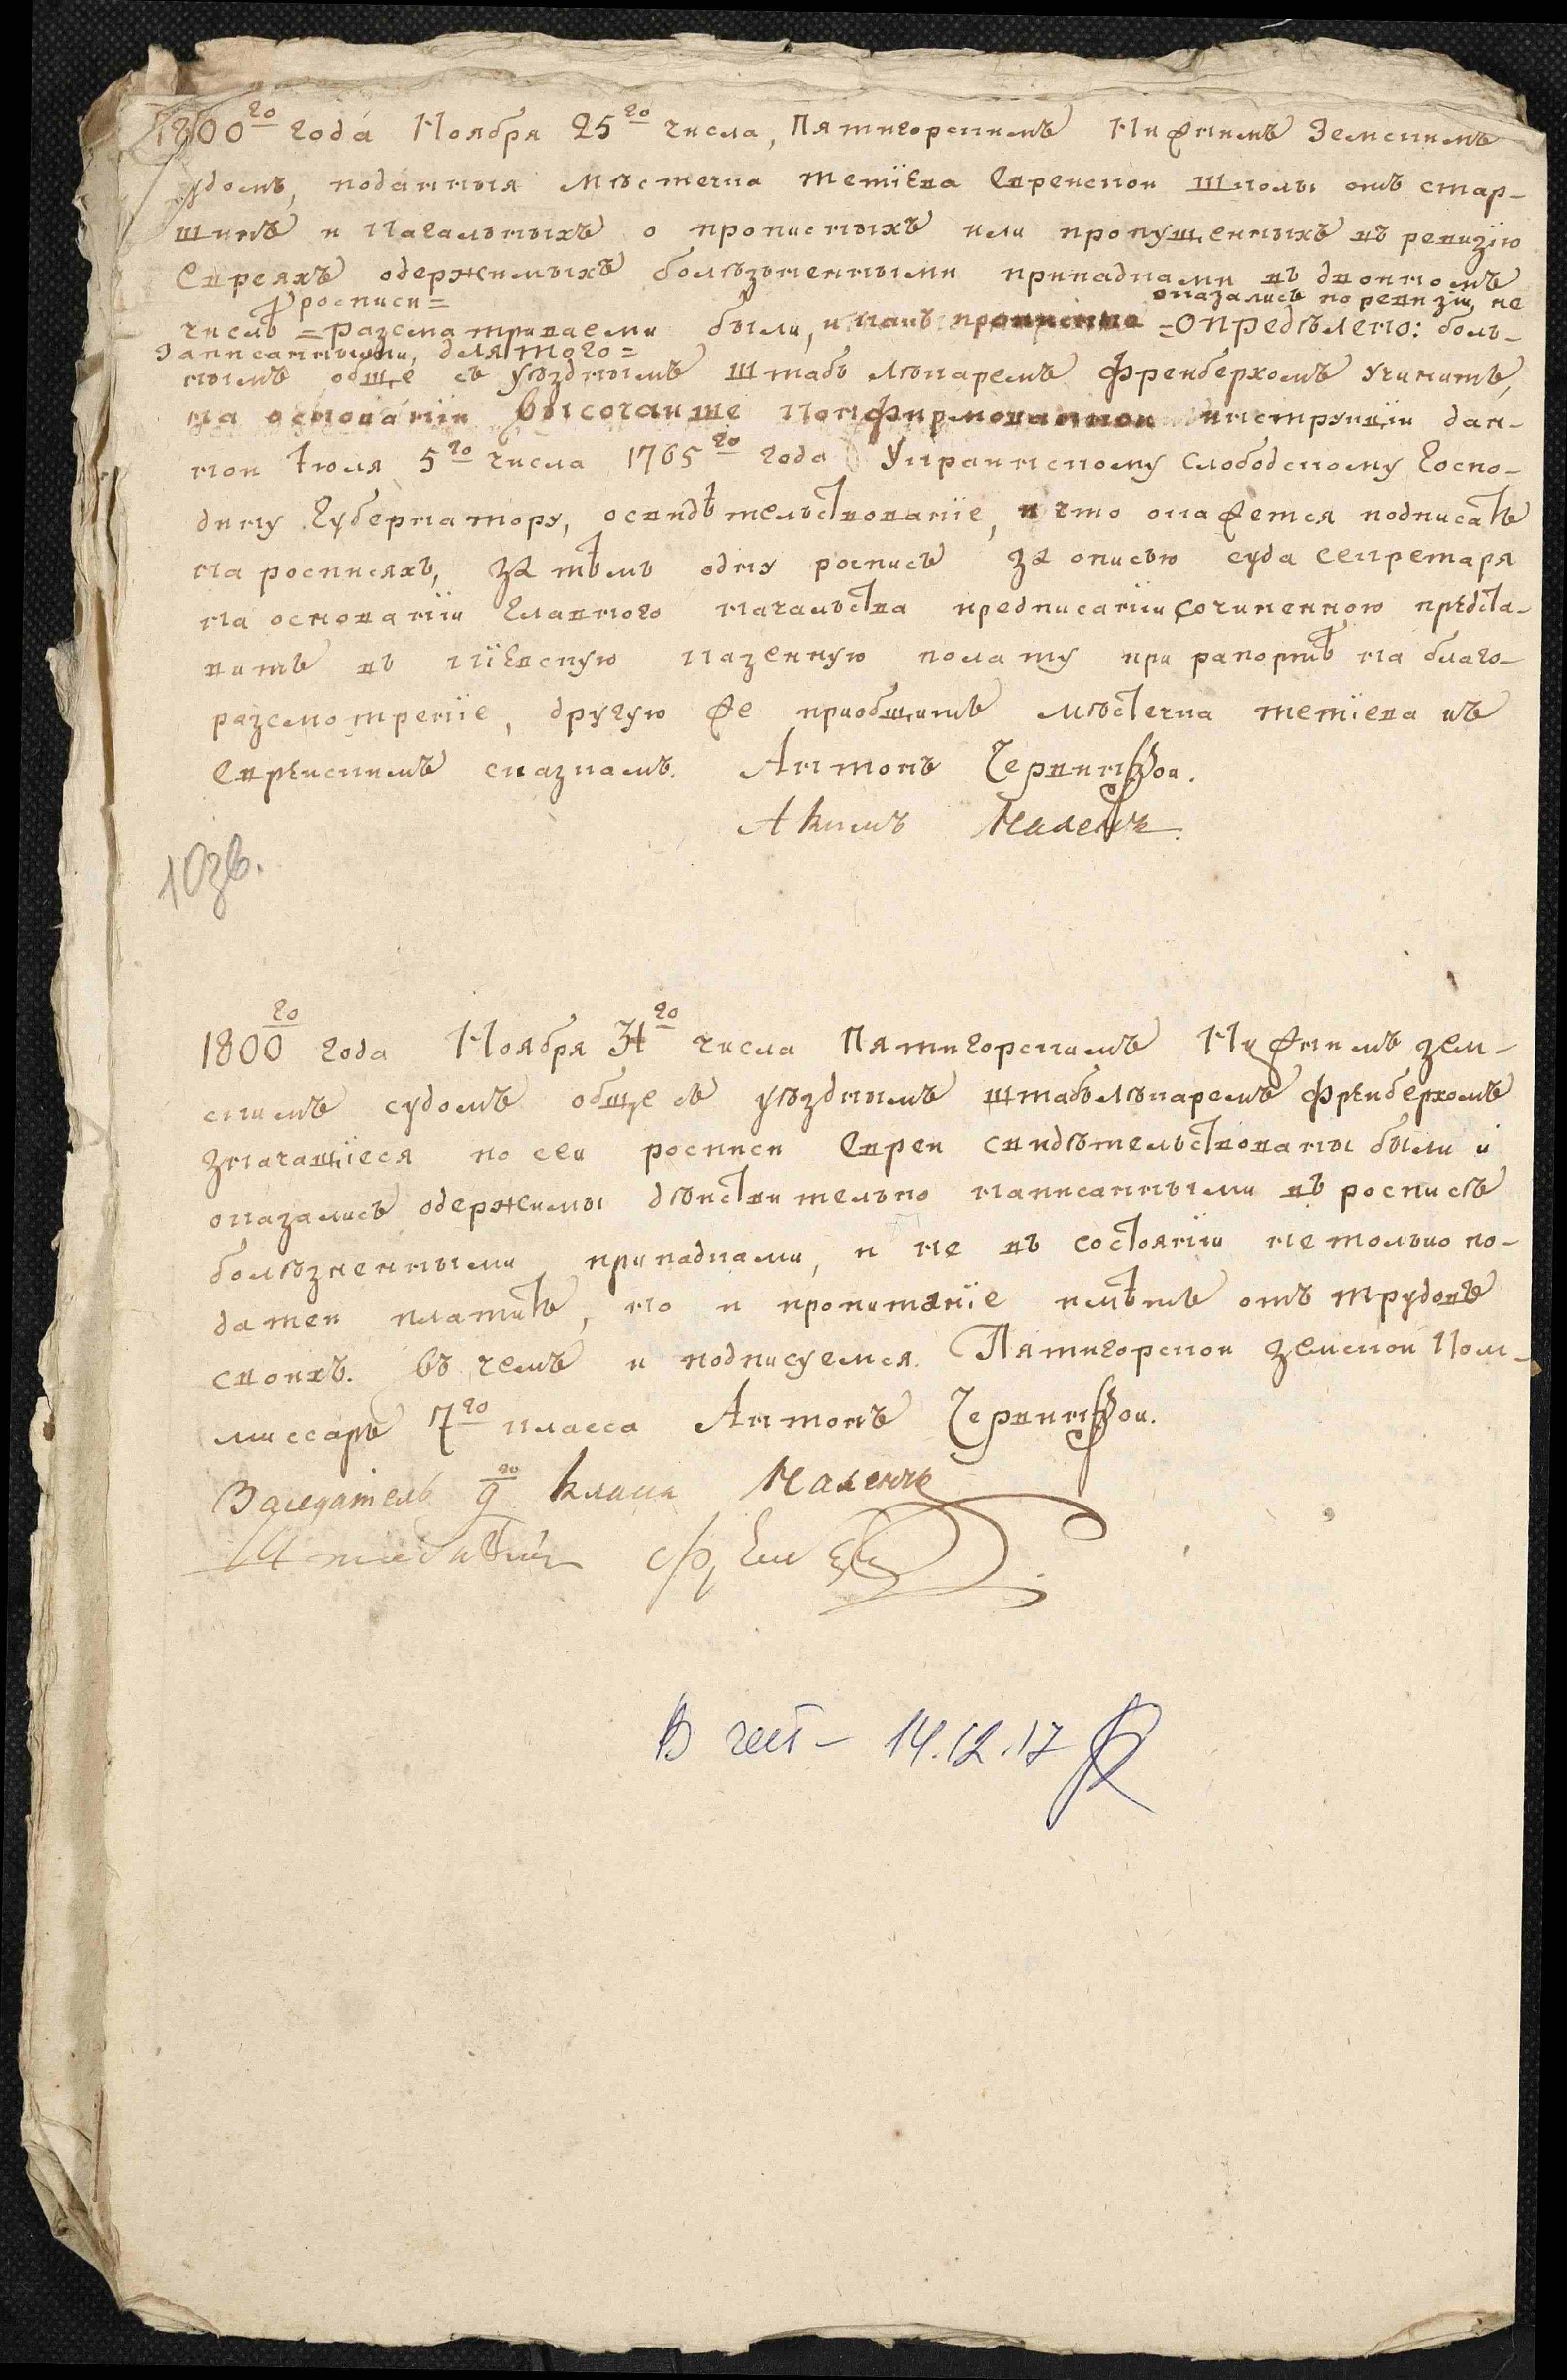 1800го года Ноября 25го числа, Пятигорскимъ Нижнимъ Земскимъ
удомъ, поданныя мѣстечка Тетїева Еврейской школы отъ стар-
шинъ и кагальныхъ о прописныхъ или пропущенныхъ въ ревизїю
Евреяхъ одержимыхъ болѣзьненными припадками въ двоиномъ
росписи =
оказались по ревизїи, не
числѣ = разсматриваеми были, и какъ = Опредѣлено: боль-
записанными, для того =
нымъ обще съ уѣзднымъ штабъ лѣкаремъ Фреибергомъ учинить,
на основанїи Высочаише конфирмованнои инструкцїи дан-
нои Июля 5го числа 1765го года Украинскому Слободскому Госпо-
дину Губернатору, освидѣтельствованїе, и что окажется подписать
на росписяхъ, за тѣмъ одну роспись за описью суда секретаря
на основанїи Главного начальства предписанїи сочиненною предста-
вить въ кїевскую казенную полату при рапортѣ на благо-
разсмотренїе, другую же приобщить мѣстечка тетїева къ
Еврейскимъ сказкамъ. Антонъ
Акимъ
1800го года Ноября го числа Пятигорскимъ Нижнимъ зем-
скимъ судомъ обще съ уѣзднымъ штабълѣкаремъ Фреибергомъ
значащїеся по сеи росписи Евреи свидѣтельствованы были и
оказались одержимы дѣиствительно написанными въ росписѣ
болѣзненными припадками, и не въ состоянїи не только по-
датеи платить, но и пропитанїе имѣть отъ трудовъ
своихъ. Въ чемъ и подписуемся. Пятигорскои земскои Ком-
миссаръ 7го класса Антонъ
Заседатель 9го класса
14.12.17